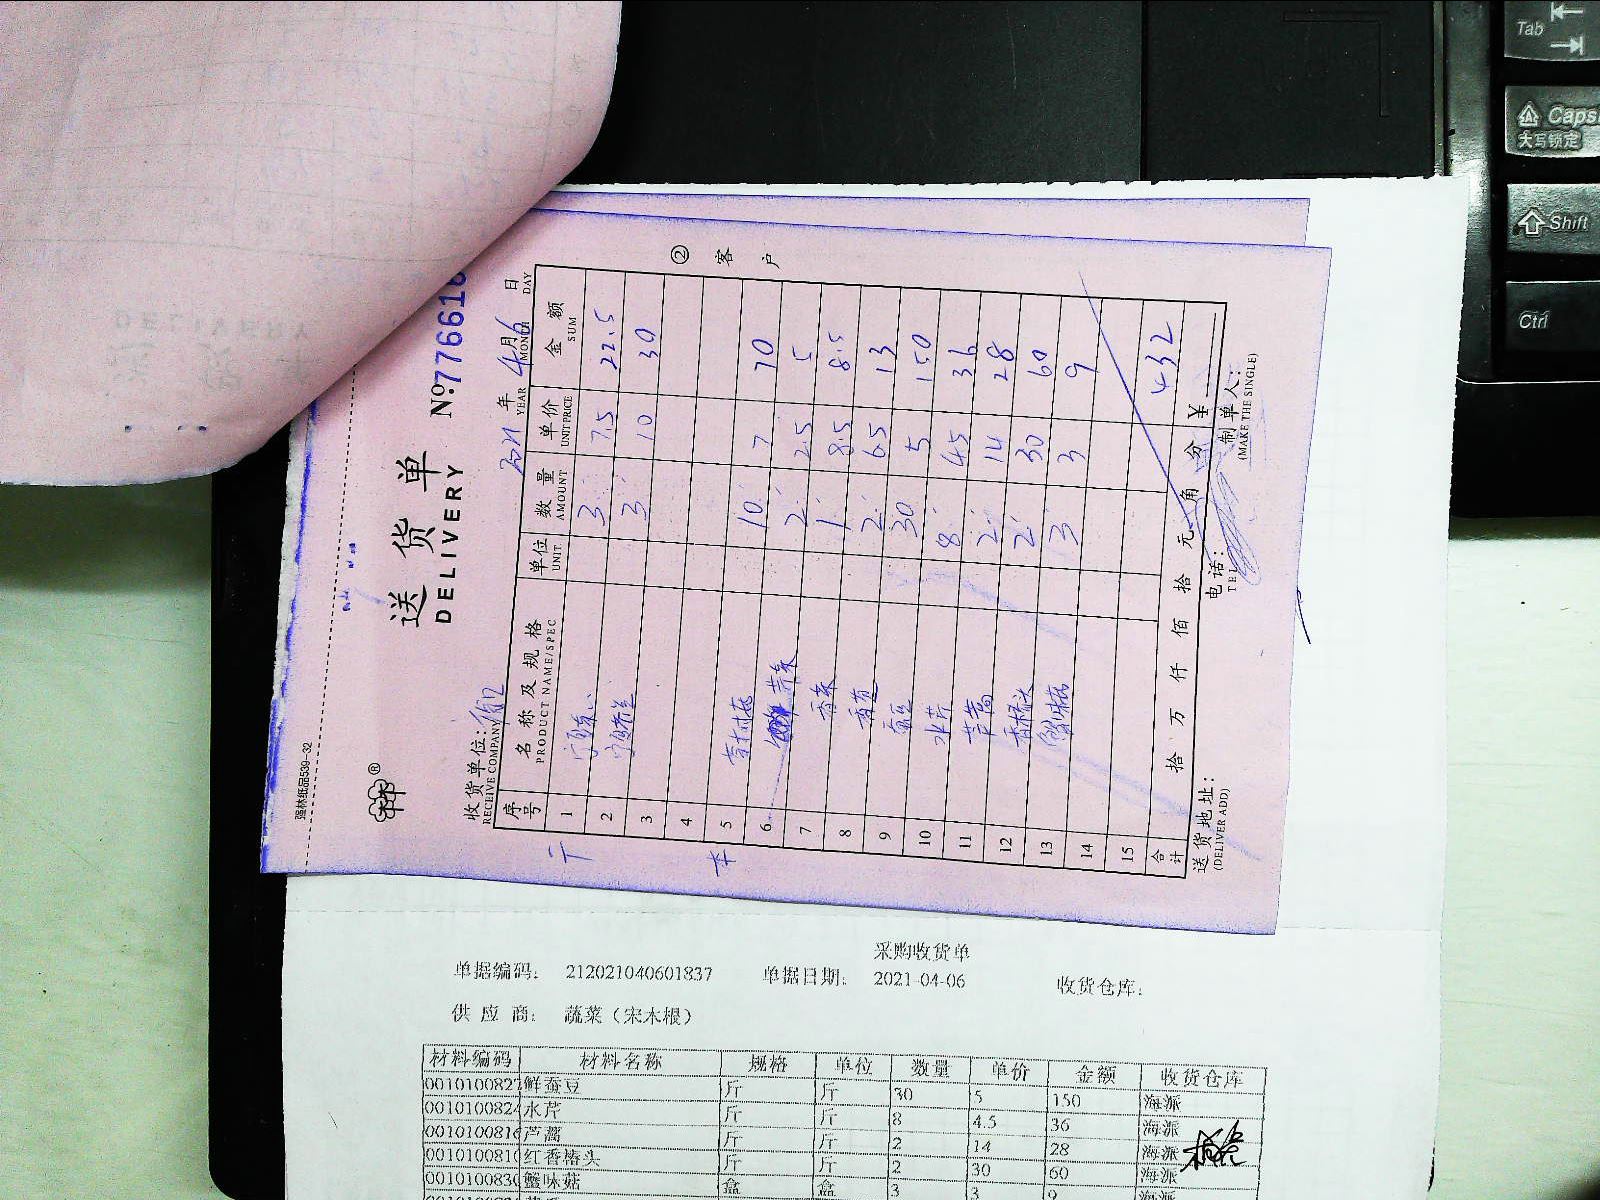 强林纸品539-32
送货单
DELIVERY
No.776616
收货单位:
RECEIVE COMPANY
2021年4月6日
YEAR MONTH DAY
②客户
序号 名称及规格 单位 数量 单价 金额
PRODUCT NAME/SPEC UNIT AMOUNT UNIT PRICE SUM
1 3 7.5 22.5
2 3 10 30
3
4
5 杏鲍菇 10 7 70
6 芹菜 2 2.5 5
7 香菜 1 8.5 8.5
8 香葱 2 6.5 13
9 蚕豆 30 5 150
10 水芹 8 4.5 36
11 芦蒿 2 14 28
12 香椿头 2 30 60
13 蟹味菇 3 3 9
14
15
合计 拾万仟佰拾元角分 ¥ 432
送货地址: 电话: 制单人:
(DELIVER ADD) TEL (MAKE THE SINGLE)
采购收货单
单据编码: 212021040601837 单据日期: 2021-04-06 收货仓库:
供应商: 蔬菜(宋木根)
材料编码 材料名称 规格 单位 数量 单价 金额 收货仓库
001010082 鲜蚕豆 斤 斤 30 5 150 海派
001010082 水芹 斤 斤 8 4.5 36 海派
001010081 芦蒿 斤 斤 2 14 28 海派
001010081 红香椿头 斤 斤 2 30 60 海派
001010083 蟹味菇 盒 盒 3 3 9 海派
Tab
Caps
大写锁定
Shift
Ctrl